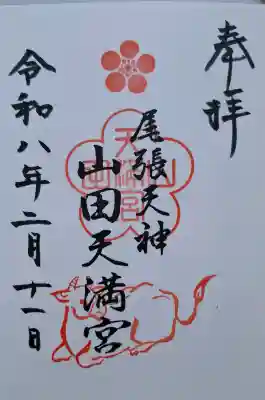 奉拝
尾張天神
山田天満宮
令和八年二月十一日
山田天満宮